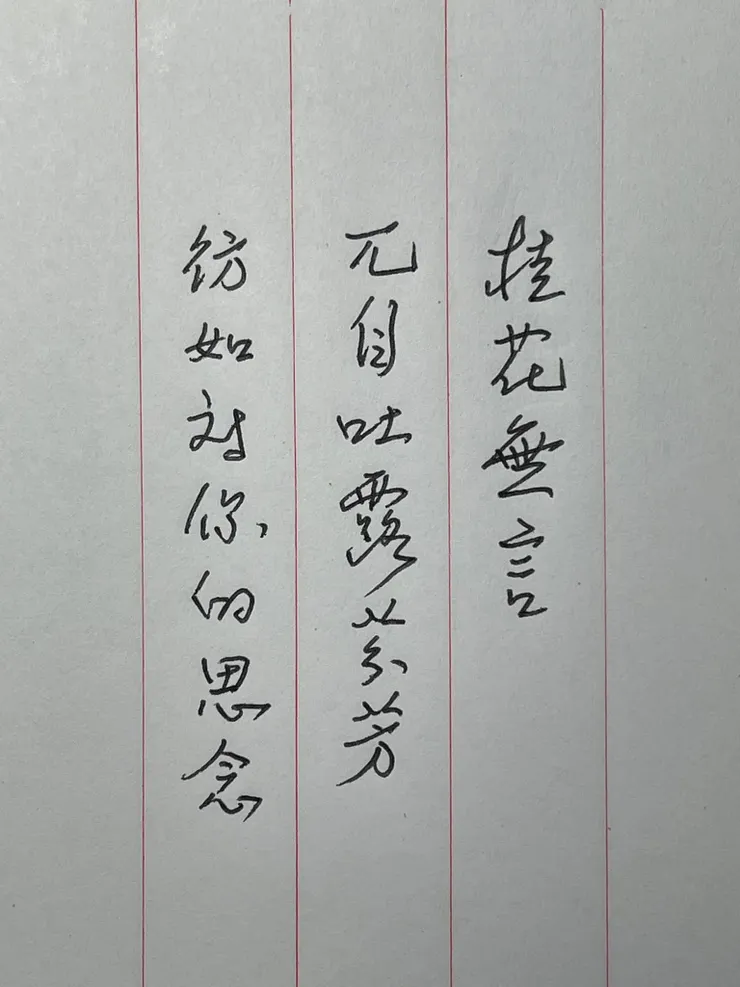 桂花無言
兀自吐露芬芳
彷如对你的思念